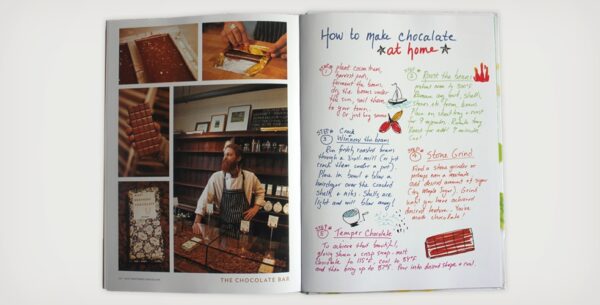 How to make chocolate
at home
STEP #
1 plant cocoa trees,
harvest pods,
ferment the beans
dry the beans under
the sun, sail them
to your town.
Or just buy some
STEP #
2 Roast the beans
preheat oven to 300°F.
Remove any dust, shells,
stones etc. from beans.
Place on sheet tray & roast
for 9 minutes. Rotate tray.
Roast for addt'l 9 minutes.
Cool!
STEP #
3 Crack
Winnow the beans
Run freshly roasted beans
through a small mill (or just
crack them under a pot).
Place in bowl & blow a
hairdryer over the cracked
shells & nibs. Shells are
light and will blow away!
STEP #
4 Stone Grind
Find a stone grinder or
perhaps even a
add desired amount of sugar
(try Maple Sugar). Grind
until you have achieved
desired texture. You've
made chocolate!
STEP #
5 Temper Chocolate
To achieve that beautiful,
glossy sheen & crisp snap - melt
chocolate to 115°F, cool to 84°F
and then bring up to 87°F. Pour into desired shape & cool.
THE CHOCOLATE BAR